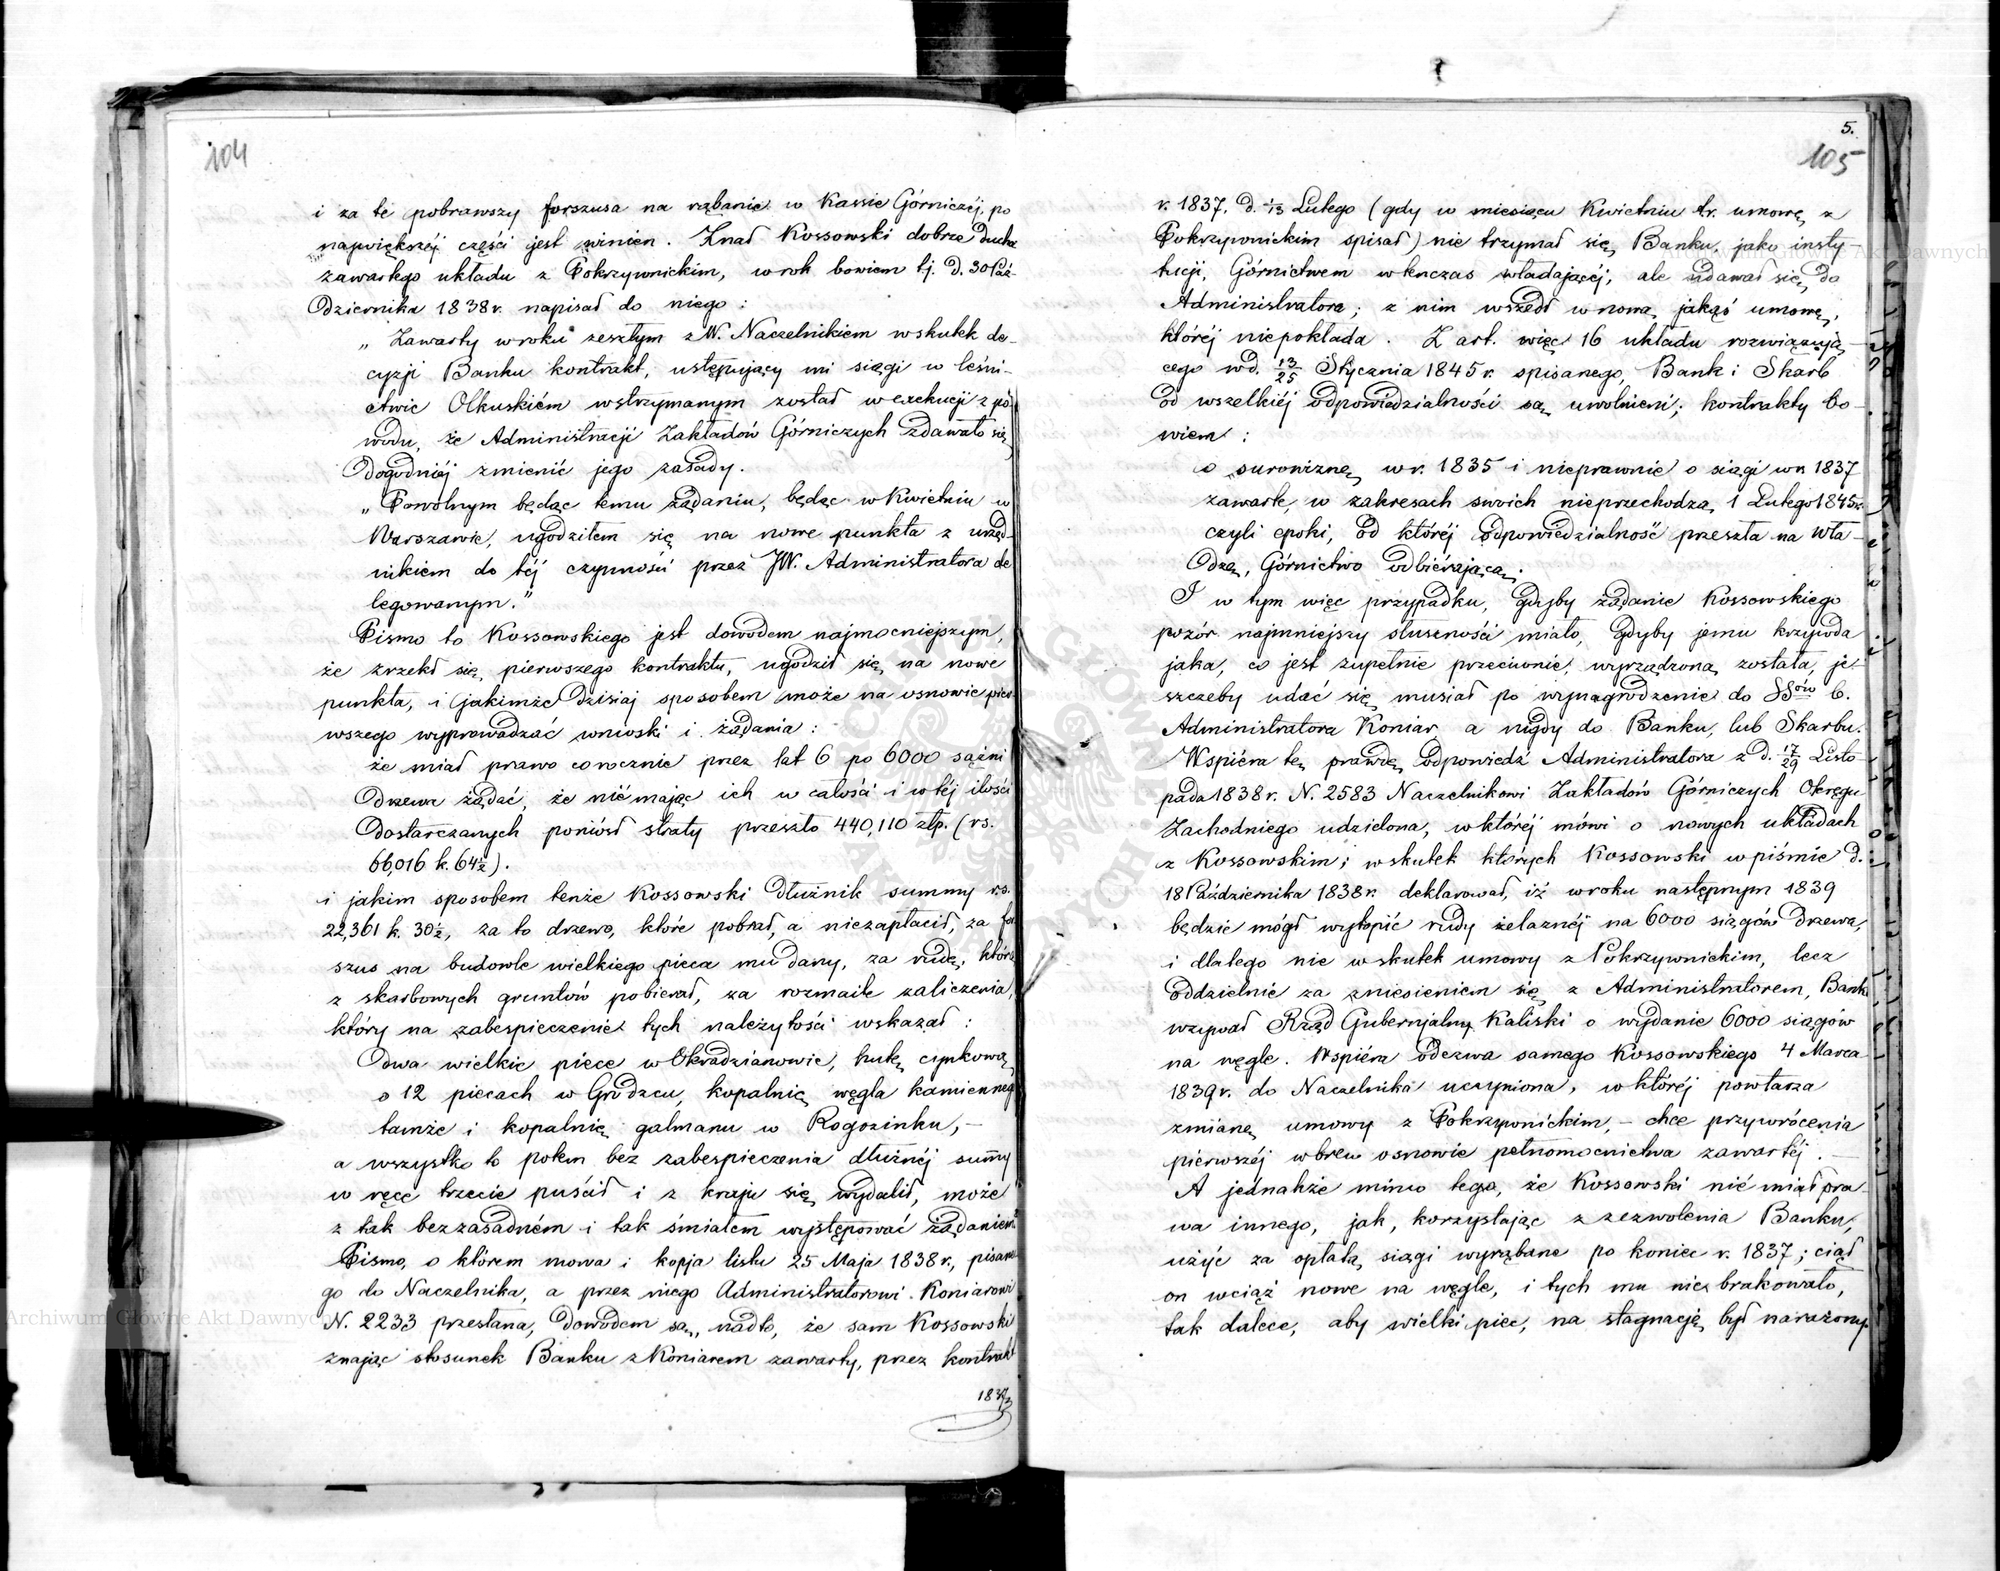 104
i za te pobrawszy forszusa na rąbanie w Kassie Górniczéj, po
największéj części jest winien. Znał Kossowski dobrze ducha
zawartego układu z Pokrzywnickim, w rok bowiem tj. d. 30 Paź-
dziernika 1838 r. napisał do niego:
„Zawarty w roku zeszłym z W. Naczelnikiem wskutek de-
cyzji Banku kontrakt, ustępujący mi siągi w leśni-
ctwie Olkuskiém wstrzymanym został w exekucji z po-
wodu, że Administracji Zakładów Górniczych zdawało się
dogodniéj zmienić jego zasady.
„Powolnym będąc temu żądaniu, będąc w Kwietniu w
Warszawie, ugodziłem się na nowe punkta z urzęd-
nikiem do téj czynności przez JW. Administratora de
legowanym."
Pismo to Kossowskiego jest dowodem najmocniejszym,
że zrzekł się pierwszego kontraktu, ugodził się na nowe
punkta, i jakimże dzisiaj sposobem może na osnowie pier-
wszego wyprowadzać wnioski i żądania:
że miał prawo corocznie przez lat 6 po 6000 sążni
drzewa żądać, że nié mając ich w całości i w téj ilości
dostarczanych poniósł straty przeszło 440,110 złp. (rs.
66,016 k. 64½).
i jakim sposobem tenże Kossowski dłużnik summy rs.
22,361 k. 30½, za to drzewo, które pobrał, a niezapłacił, za for
szus na budowle wielkiego pieca mu dany, za rudę, którą
z skarbowych gruntów pobierał, za rozmaite zaliczenia,
który na zabespieczenie tych należytości wskazał:
Dwa wielkie piece w Okradzianowie, hutę cynkową
o 12 piecach w Grodzcu, kopalnię węgla kamiennego
tamże i kopalnię galmanu w Rogozinku, –
a wszystko to potem bez zabespieczenia dłużnéj summy
w ręce trzecie puścił i z kraju się wydalił, może
z tak bezzasadném i tak śmiałem występować żądaniem?
Pismo, o którem mowa i kopja listu 25 Maja 1838 r., pisane
go do Naczelnika, a przez niego Administratorowi Koniarowi
N. 2233 przesłana, dowodem są, nadto, że sam Kossowski
znając stosunek Banku z Koniarem zawarty, przez kontrakt
1837
5.
105
r. 1837. d. 1/13 Lutego (gdy w miesiącu Kwietniu t.r. umowę z
Pokrzywnickim spisał) nie trzymał się Banku, jako insty-
tucji, Górnictwem wówczas władającéj, ale udawał się do
Administratora; z nim wszedł w nową jakąś umowę,
któréj niepokłada. Z art. więc 16 układu rozwiązują-
cego w d. 13/25 Stycznia 1845 r. spisanego, Bank i Skarb
od wszelkiéj odpowiedzialności są uwolnieni; kontrakty bo-
wiem:
o surowiznę w r. 1835 i nieprawnie o siągi w r. 1837
zawarte, w zakresach swoich nieprzechodzą 1 Lutego 1845 r.
czyli epoki, od któréj odpowiedzialność przeszła na Wła-
dzę, Górnictwo odbiérającą.
I w tym więc przypadku, gdyby żądanie Kossowskiego
pozór najmniejszy słuszności miało, gdyby jemu krzywda
jaka, co jest zupełnie przeciwnie, wyrządzoną została, je-
szczeby udać się musiał po wynagrodzenie do SSów b.
Administratora Koniar, a nigdy do Banku, lub Skarbu.
Wspiéra tę prawdę odpowiedź Administratora z d. 17/29 Listo-
pada 1838 r. N. 2583 Naczelnikowi Zakładów Górniczych Okręgu
Zachodniego udzielona, w któréj mówi o nowych układach
z Kossowskim; wskutek których Kossowski w piśmie d.
18 Października 1838 r. deklarował, iż w roku następnym 1839
będzie mógł wytopić rudy żelaznéj na 6000 siągów drzewa,
i dlatego nie wskutek umowy z Pokrzywnickim, lecz
oddzielnie za zniesieniem się z Administratorem, Bank
wzywał Rząd Gubernjalny Kaliski o wydanie 6000 siągów
na węgle. Wspiéra odezwa samego Kossowskiego 4 Marca
1839 r. do Naczelnika uczyniona, w któréj powtarza
zmianę umowy z Pokrzywnickim, – chce przywrócenia
pierwszéj wbrew osnowie pełnomocnictwa zawartéj. –
A jednakże mimo tego, że Kossowski nié miał pra-
wa innego, jak, korzystając z zezwolenia Banku,
użyć za opłatą siągi wyrąbane po koniec r. 1837; ciął
on wciąż nowe na węgle, i tych mu nie brakowało,
tak dalece, aby wielki piec, na stagnację był narażony.
Archiwum Główne Akt Dawnych
Archiwum Główne Akt Dawnych